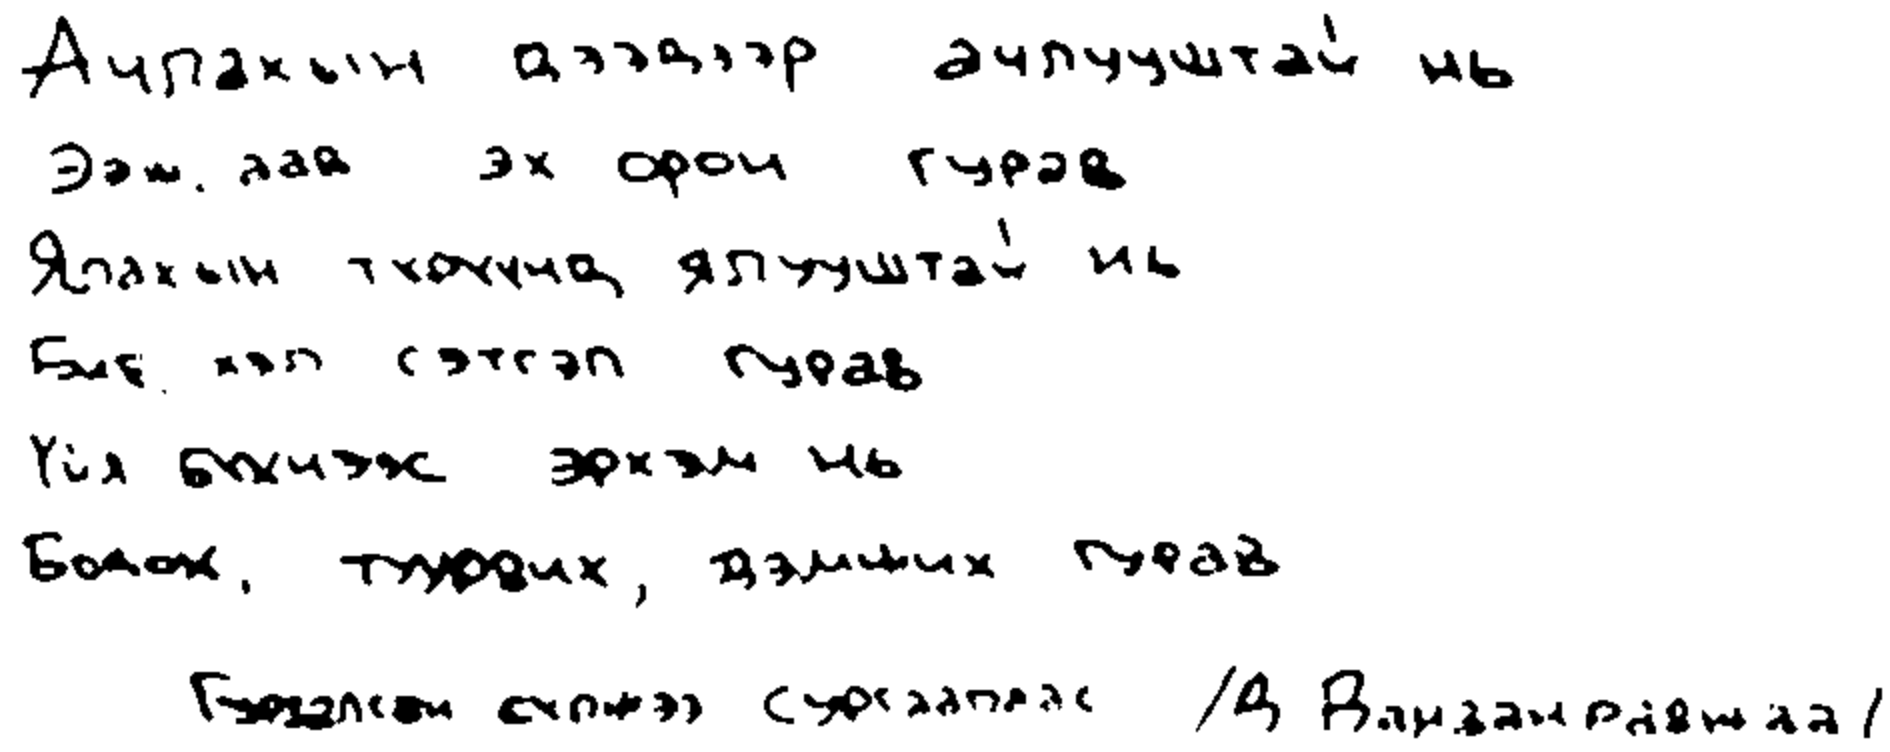 Ачлахын дээдээр ачлууштай нь
Ээж, аав эх орон гурав
Ялахын түхүүнд ялууштай нь
Бие, хэл сэтгэл гурав
Үйл бүхнээс эрхэм нь
Бодох, туурвих, дэмжих гурав
Гурвалсан сүлжээ сургаалаас /Д Вандандравжаа/